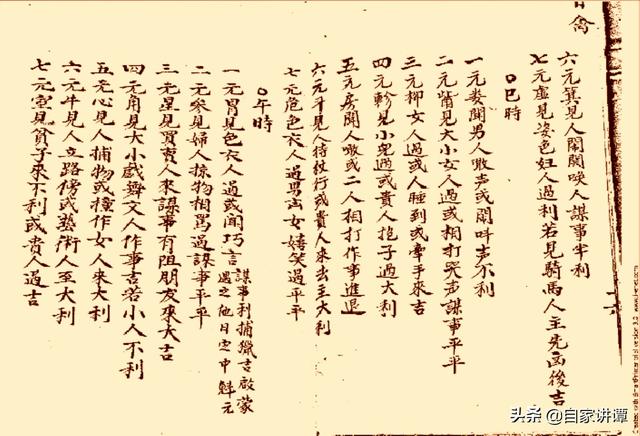 禽
六元箕見人閙喚人謀事半利
七元虛見姿色妇人過利若見騎馬人主先凶後吉
〇巳時
一元娄聞男人喚声或聞呌声不利
二元觜見大小女人過或相打哭声謀事平平
三元柳女人過或人睡到或牽手來吉
四元軫見小児過或貴人抱子過大利
五元房聞人喚或二人相打作事進退
六元斗見人待杖行或貴人來出主大利
七元危色衣人過男女嬉笑過平平
〇午時
一元胃見色衣人過或聞巧言
謀事利捕獵吉啟蒙
遇之他日定中魁元
二元參見婦人掠物相罵過謀事平平
三元星見買賣人來謀事有阻朋友來大吉
四元角見大小戲舞文人作事吉若小人不利
五元心見人捕物或撞作女人來大利
六元牛見人立路傍或藝術人至大利
七元室見貧子來不利或貴人過吉
头条 @自家讲谭